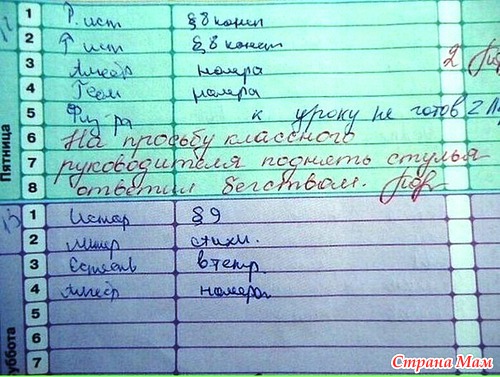 1 Р. ист § 8 консп
2 Р ист § 8 консп
3 Алгебр номера 2
4 Геом номера
5 Физ-ра к уроку не готов 2
6 На просьбу классного
7 руководителя поднять стулья
8 ответил бегством.
Пятница
13
1 Истор § 9
2 Литер стихи.
3 Естеств в тетр.
4 Алгебр номера
5
6
7
уббота
Страна Мам